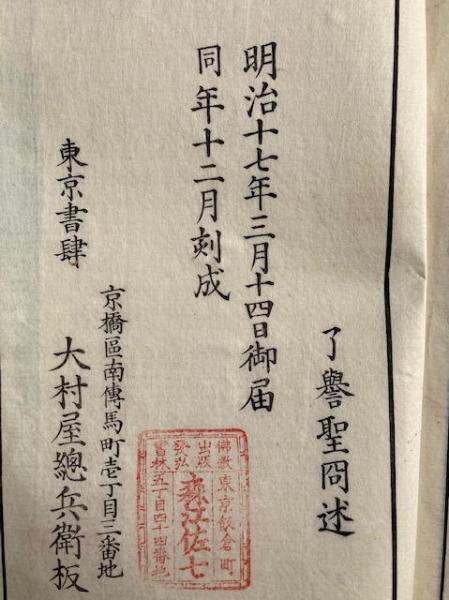 了譽聖冏述
明治十七年三月十四日御届
同年十二月刻成
東京書肆
京橋區南傳馬町壱丁目三番地
大村屋總兵衛板
佛教
出版
發弘
書林
東京飯倉町
五丁目四十四番地
森江佐七